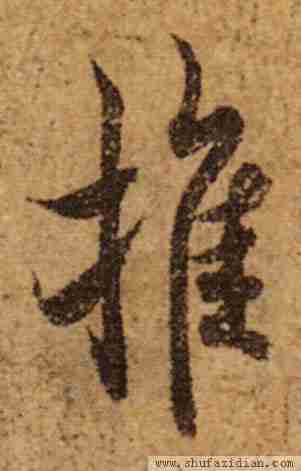 推
www.shufazidian.com